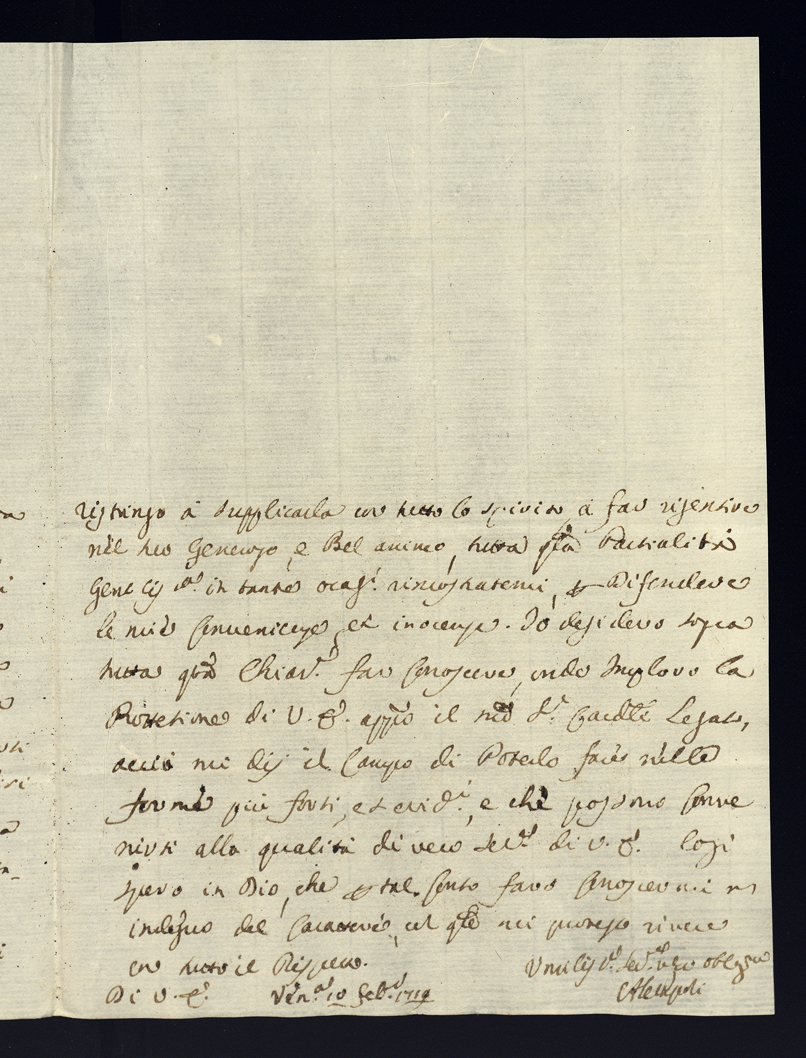 ristringo á supplicarla con tutto lo spirito á far risentire
nel suo Generoso, e Bel animo, tutta qta Partialità
in tante ocasi. rimostratemi, Difendere
le mie Convenienze et inocenza. Io desidero sopra
tutta far Conoscere, onde Imploro la
Protetione di V. E. il Legato,
acciò mi dij il Campo di Poterlo fare nelle
forme piú forti, et evidi., e che possono Conve
nirsi alla qualità di vero di V. E. Cosi
spero in Dio, che tal Conto farò Conoscermi n
indegno del Carattere, col qle mi protesto vivere
con tutto il Rispetto.
Di V. E. 10 Feb. 1719
Umilis.